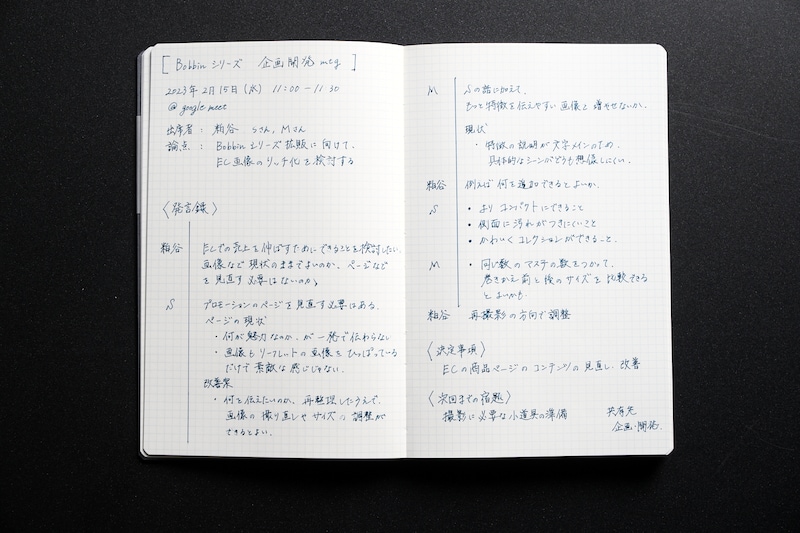 [ Bobbin シリーズ 企画開発 mtg ]
2023年 2月15日 (水) 11:00 - 11:30
@ google meet
出席者 : 粕谷 Sさん, Mさん
論点 : Bobbin シリーズ拡販に向けて、
EC画像のリッチ化を検討する
〈発言録〉
粕谷 ECでの売上を伸ばすためにできることを検討したい。
画像など現状のままでよいのか、ページなど
を見直す必要はないのか?
S プロモーションのページを見直す必要はある。
ページの現状
・何が魅力なのか、が一発で伝わらない
・画像もリーフレットの画像をひっぱっている
だけで素敵な感じじゃない。
改善案
・何を伝えたいのか、再整理したうえで、
画像の撮り直しやサイズの調整が
できるとよい。
M Sの話に加えて、
もっと特徴を伝えやすい画像を増やせないか。
現状
・特徴の説明が文字メインのため、
具体的なシーンがどうも想像しにくい。
粕谷 例えば何を追加できるとよいか。
S ・よりコンパクトにできること
・側面に汚れがつきにくいこと
・かわいくコレクションができること。
M ・同じ数のマステの数をつかって、
巻きかえ前と後のサイズを比較できる
とよいかも
粕谷 再撮影の方向で調整
〈決定事項〉
ECの商品ページのコンテンツの見直し、改善
〈次回までの宿題〉
撮影に必要な小道具の準備
共有先
企画・開発